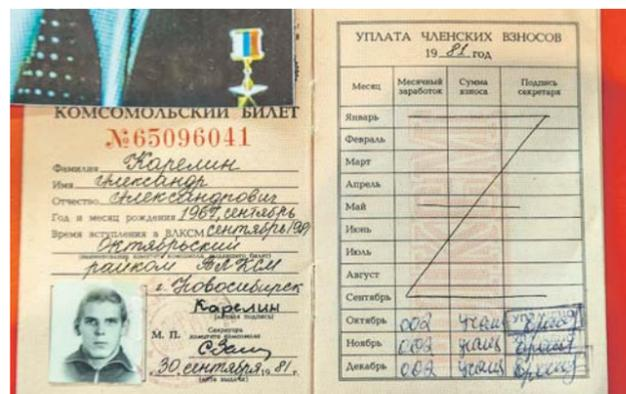 КОМСОМОЛЬСКИЙ БИЛЕТ
№65096041
Фамилия Карелин
Имя Александр
Отчество Александрович
Год и месяц рождения 1967, сентябрь
Время вступления в ВЛКСМ сентябрь 1981
Октябрьский
райком ВЛКСМ
г. Новосибирск
Карелин
(личная подпись)
М. П. Секретарь
комитета комсомола
30 сентября 1981 г.
(дата выдачи)
УПЛАТА ЧЛЕНСКИХ ВЗНОСОВ
19 81 год
Месяц Месячный заработок Сумма взноса Подпись секретаря
Январь
Февраль
Март
Апрель
Май
Июнь
Июль
Август
Сентябрь
Октябрь 002
Ноябрь 002
Декабрь 002